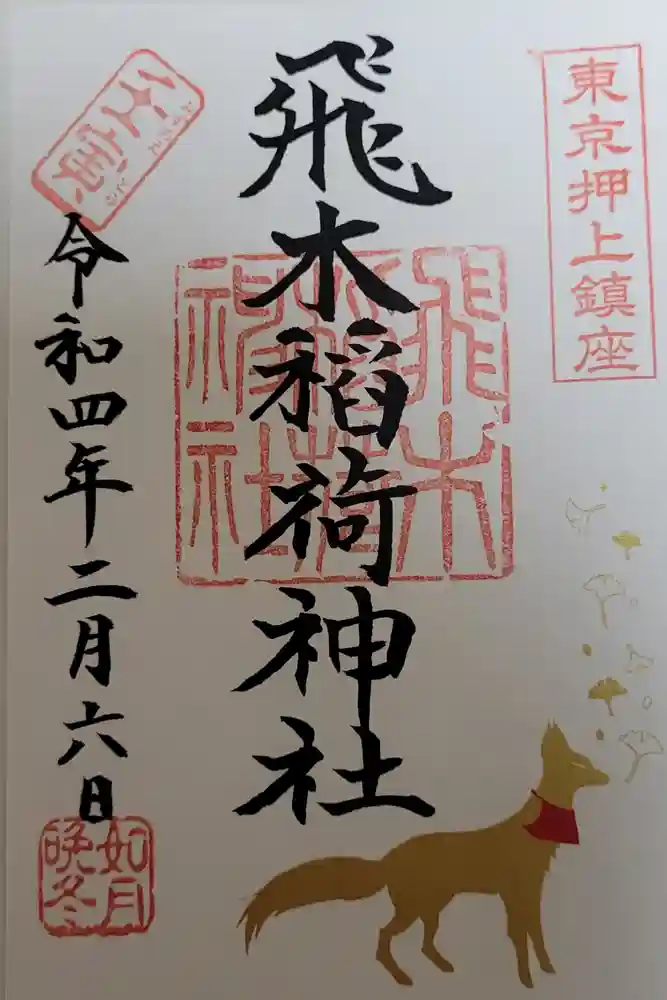 東京押上鎮座
飛木稲荷神社
飛木
稲荷
神社
壬寅
令和四年二月六日
如月
晩冬